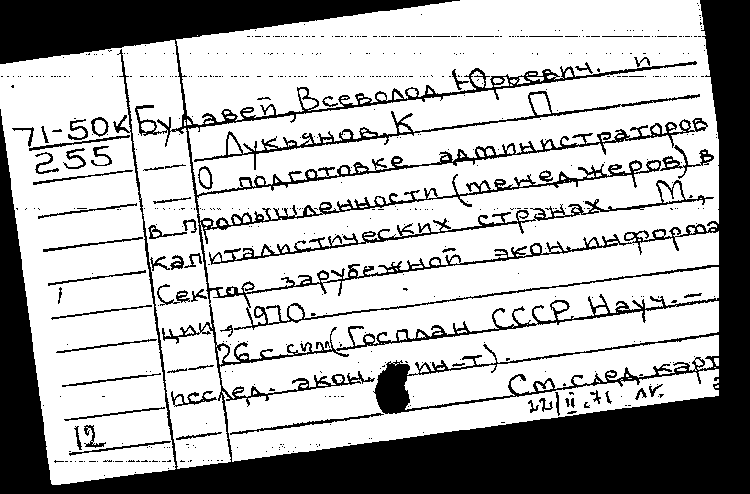 71-50к Будавей, Всеволод Юрьевич. п
255 Лукьянов, К П
О подготовке администраторов
в промышленности (менеджеров) в
капиталистических странах. М.,
Сектор зарубежной экон. информа
ции, 1970.
26 с. (Госплан СССР Науч.-
исслед. экон. ин-т).
См. след. карт
22/II.71
12